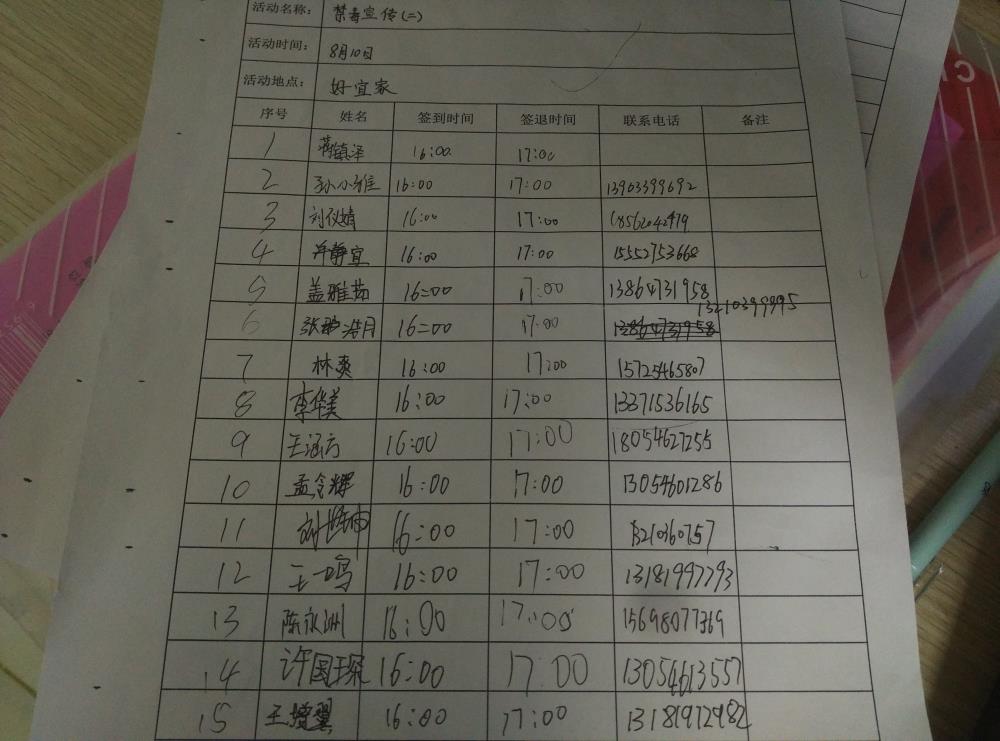 活动名称: 禁毒宣传(二)
活动时间: 8月10日
活动地点: 好宜家
序号 姓名 签到时间 签退时间 联系电话 备注
1 蒋镇泽 16:00 17:00
2 孙小雅 16:00 17:00 13903399692
3 刘仪婧 16:00 17:00 18562042479
4 许静宜 16:00 17:00 15552753668
5 盖雅茹 16:00 17:00 13864731958
13210399995
6 张 浩月 16:00 17:00 13864731958
7 林爽 16:00 17:00 15725465807
8 李华美 16:00 17:00 13371536165
9 王涵方 16:00 17:00 18054627255
10 孟令辉 16:00 17:00 13054601286
11 刘 坤 16:00 17:00 13210360757
12 王一鸣 16:00 17:00 13181997793
13 陈永洲 16:00 17:00 15698077369
14 许国琛 16:00 17:00 13054613557
15 王增翼 16:00 17:00 13181972982